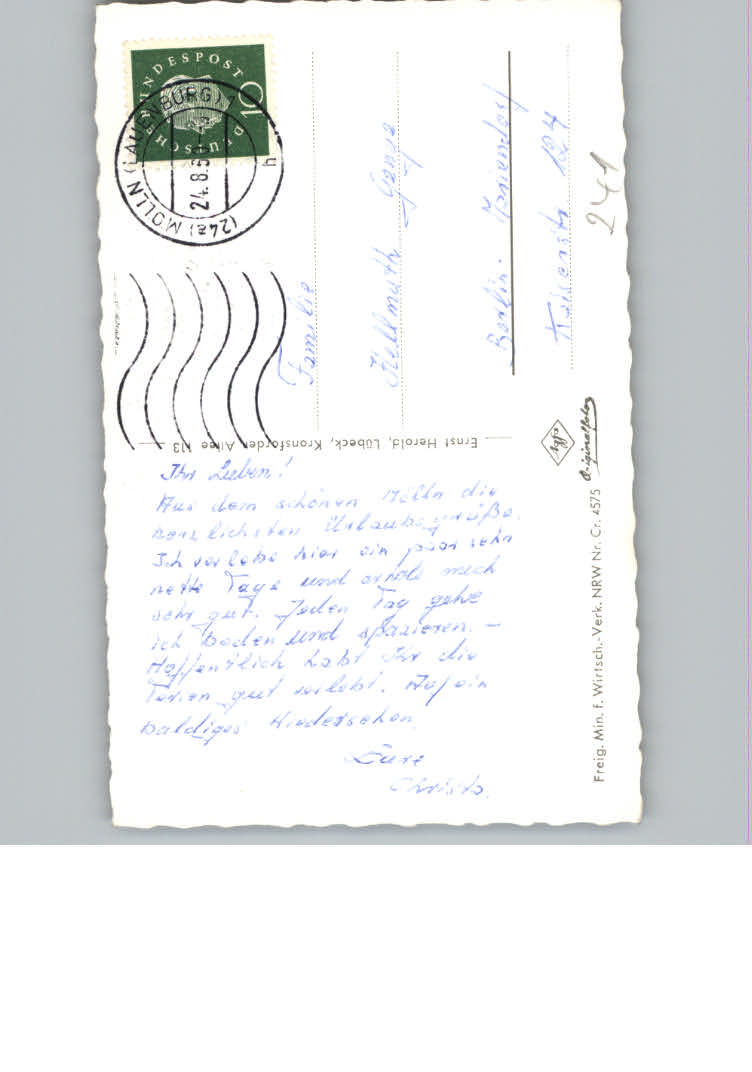 DEUTSCHE BUNDESPOST
10
(24a) MÖLLN (LAUENBURG) 1
24.8.59
h
Familie
Hellmuth
Berlin-Mariendorf
Kaiserstr 124
241
Ernst Herold, Lübeck, Kronsforder Allee 113
Agfa
Originalfoto
Freig. Min. f. Wirtsch.-Verk. NRW Nr. Cr. 4575
Ihr Lieben!
Aus dem schönen Mölln die
herzlichsten Urlaubsgrüße.
Ich verlebe hier ein paar sehr
nette Tage und erhole mich
sehr gut. Jeden Tag gehe
ich baden und spazieren. –
Hoffentlich habt Ihr die
Ferien gut verlebt. Auf ein
baldiges Wiedersehen
Eure
Christa.